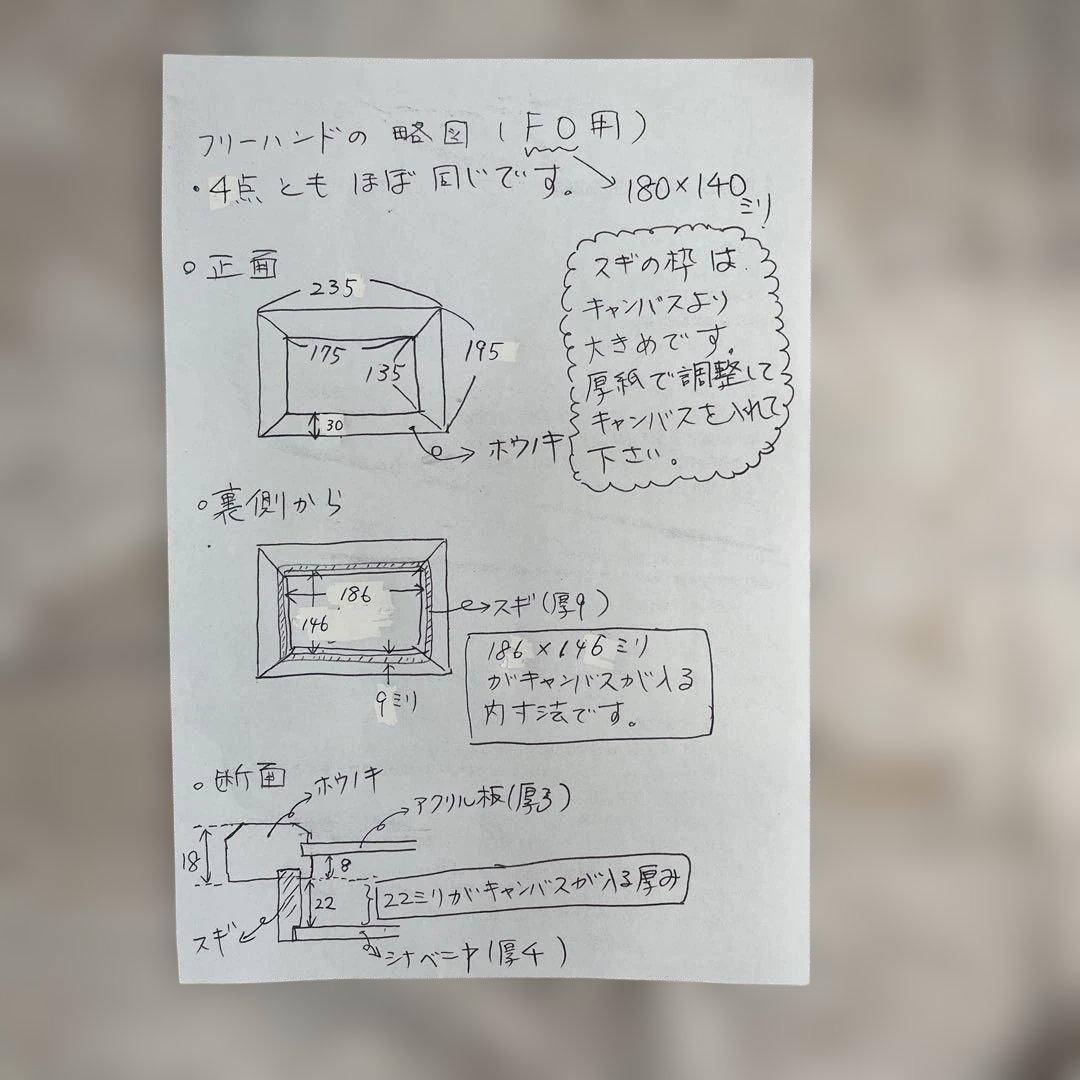 フリーハンドの略図(F0用)
・4点ともほぼ同じです。
180×140ミリ
○正面
235
175
135
195
30
ホウノキ
スギの枠は
キャンバスより
大きめです。
厚紙で調整して
キャンバスを入れて
下さい。
○裏側から
186
146
9ミリ
スギ(厚9)
186×146ミリ
がキャンバスが入る
内寸法です。
○断面
ホウノキ
アクリル板(厚3)
18
8
22
22ミリがキャンバスが入る厚み
スギ
シナベニヤ(厚4)